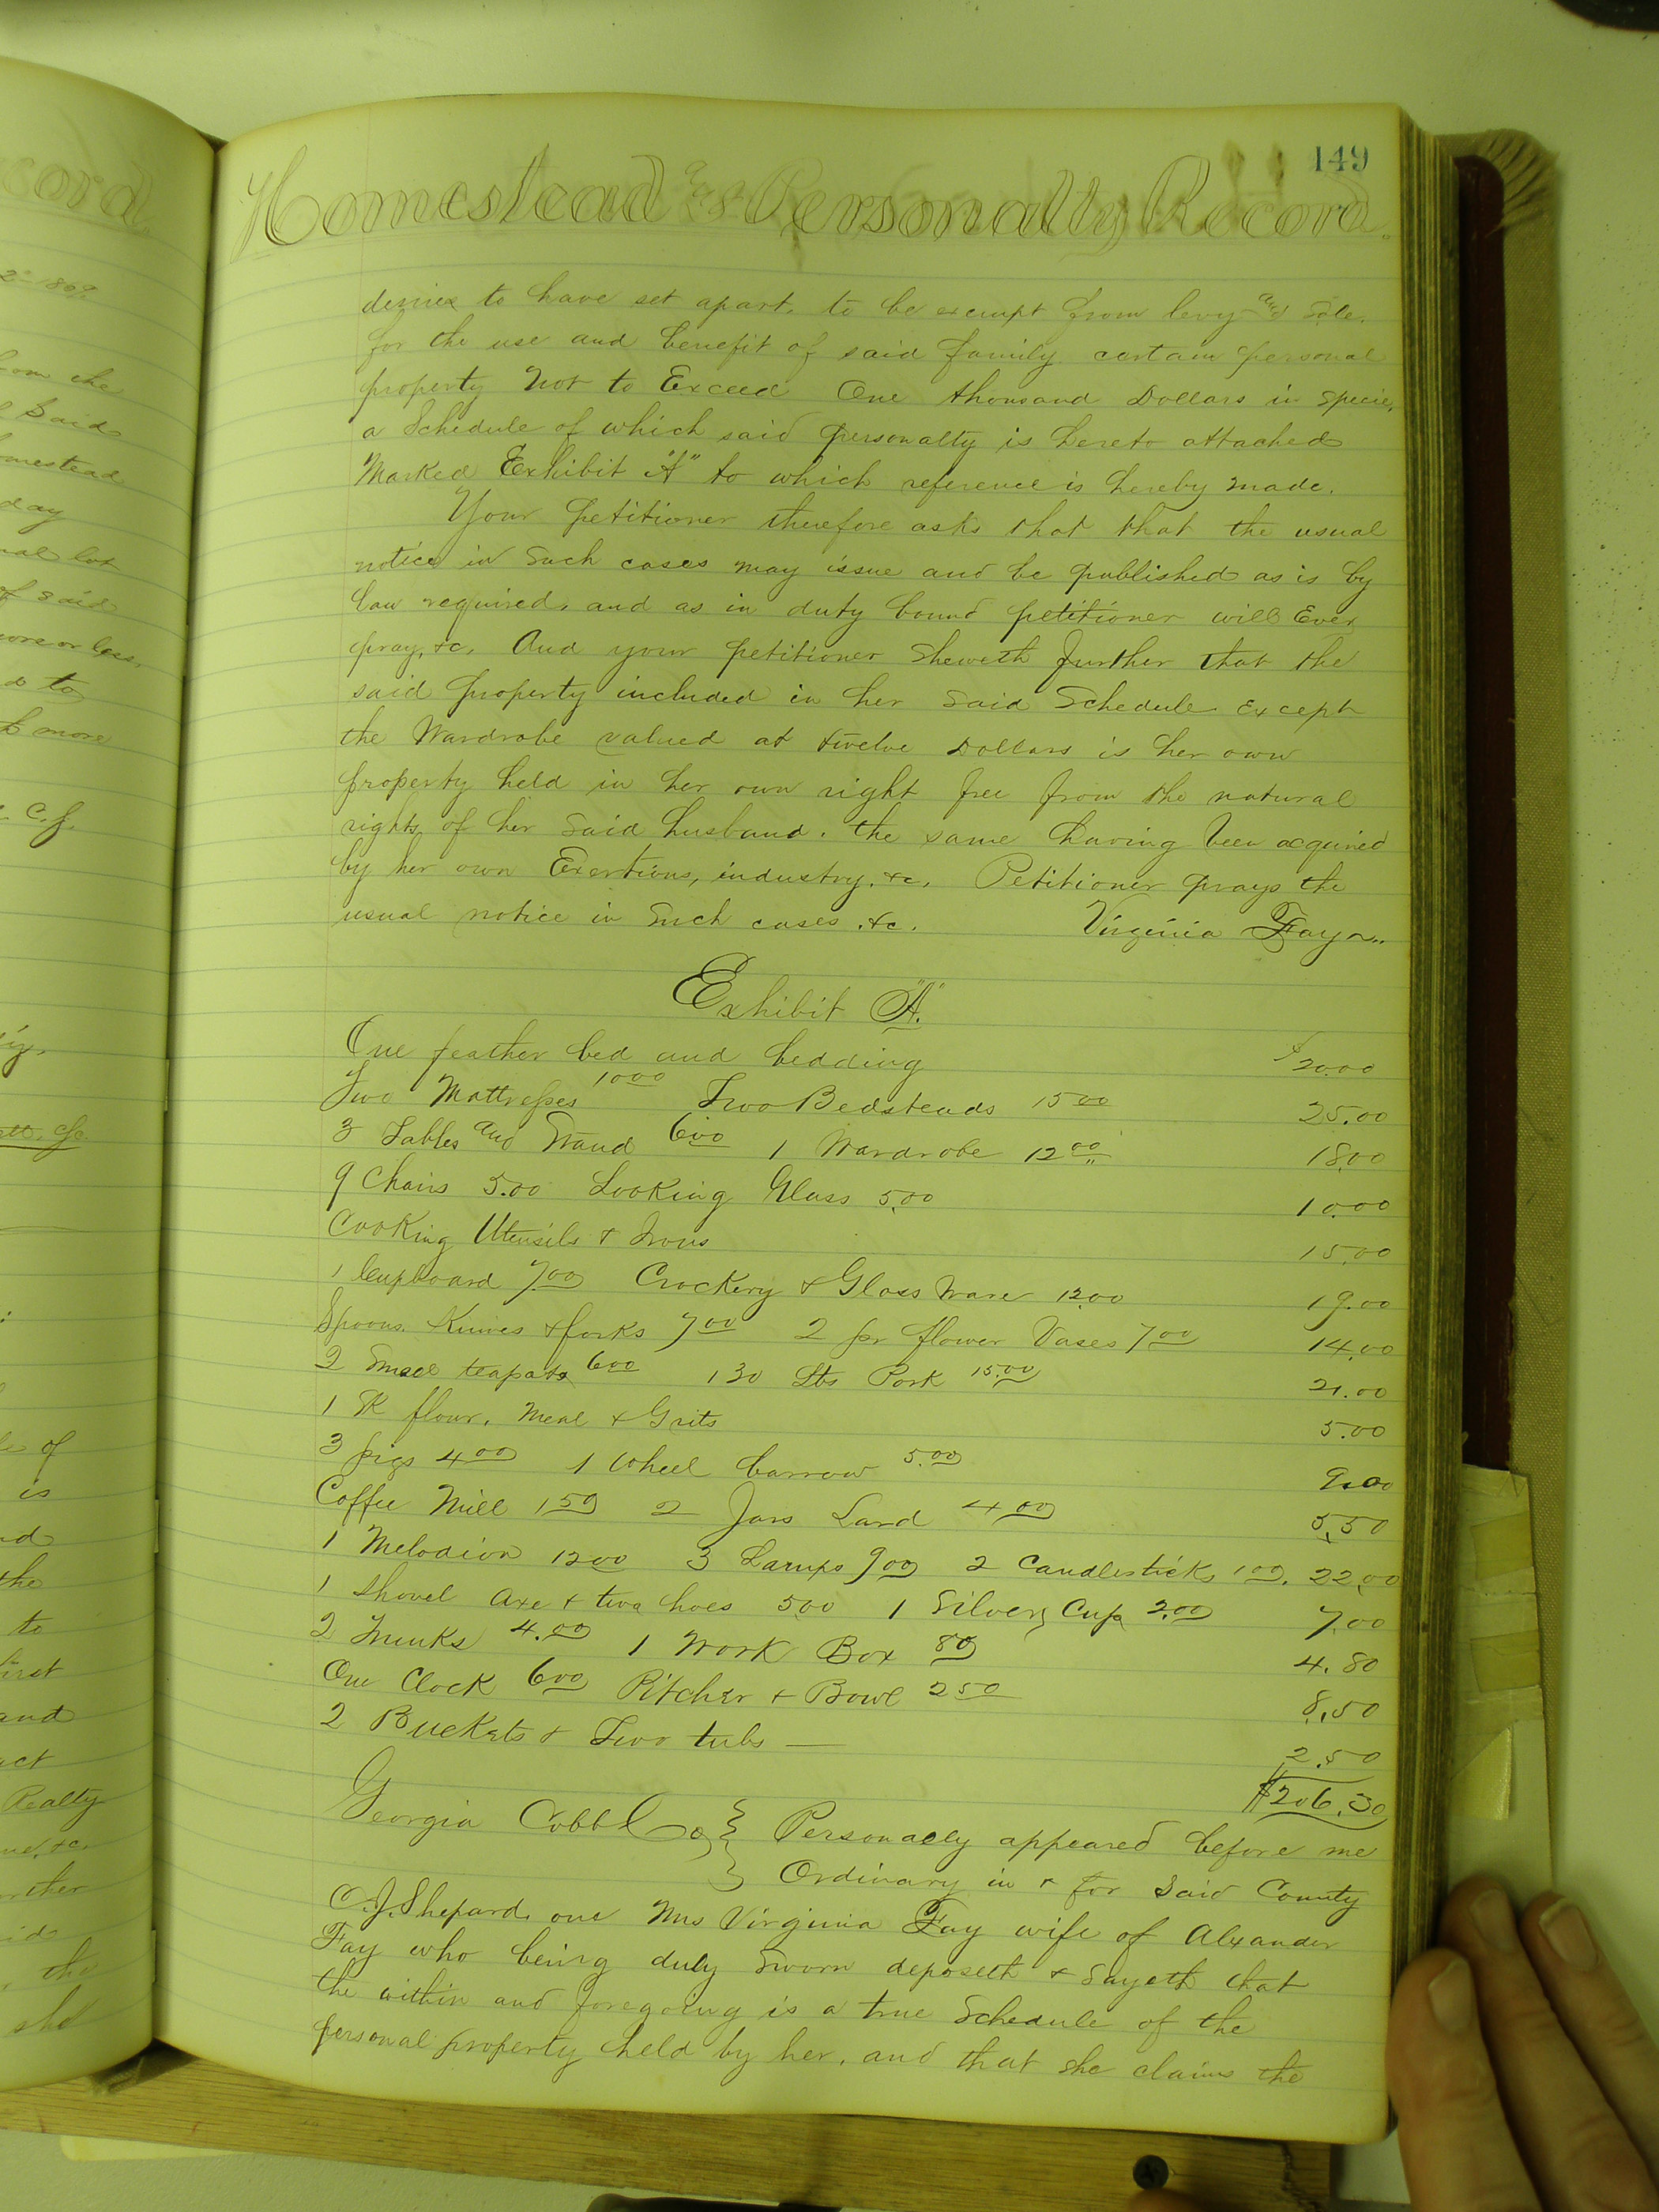 149
Homestead and Personalty Record.
desires to have set apart, to be exempt from levy and sale.
for the use and benefit of said family certain personal
property not to Exceed One thousand Dollars in specie,
a Schedule of which said personalty is hereto attached
Marked Exhibit "A" to which reference is hereby made.
Your petitioner therefore asks that that the usual
notice in Such cases may issue and be published as is by
law required, and as in duty bound petitioner will Ever
pray, &c. And your petitioner Sheweth further that the
said property included in her Said Schedule Except
the Wardrobe valued at twelve Dollars is her own
property held in her own right free from the natural
rights of her Said husband. the same having been acquired
by her own Exertions, industry, &c. Petitioner prays the
usual notice in Such cases &c. Virginia Fay
Exhibit "A."
One feather bed and bedding $20.00
Two Mattresses 1000 Two Bedsteads 1500 25.00
3 Tables and Stand 600 1 Wardrobe 1200 18.00
9 Chairs 5.00 Looking Glass 5.00 10.00
Cooking Utensils & Irons 15.00
1 Cupboard 700 Crockery & Glass Ware 12.00 19.00
Spoons. Knives & forks 700 2 pr flower Vases 700 14.00
2 Small teapots 600 130 Lbs Pork 15.00 21.00
1 Sk flour. Meal & Grits 5.00
3 pigs 400 1 Wheel barrow 5.00 9.00
Coffee Mill 150 2 Jars Lard 400 5.50
1 Melodion 1200 3 Lamps 900 2 Candlesticks 100. 22.00
1 Shovel axe & two hoes 500 1 Silver Cup 2.00 7.00
2 Trunks 4.00 1 Work Box 80 4.80
One Clock 600 Pitcher & Bowl 250 8.50
2 Buckets & Two tubs — 2.50
$206.30
Georgia Cobb Co } Personally appeared before me
} Ordinary in & for Said County
C. J. Shepard, one Mrs Virginia Fay wife of Alexander
Fay who being duly Sworn deposeth & Sayeth that
the within and foregoing is a true Schedule of the
personal property held by her, and that she claims the